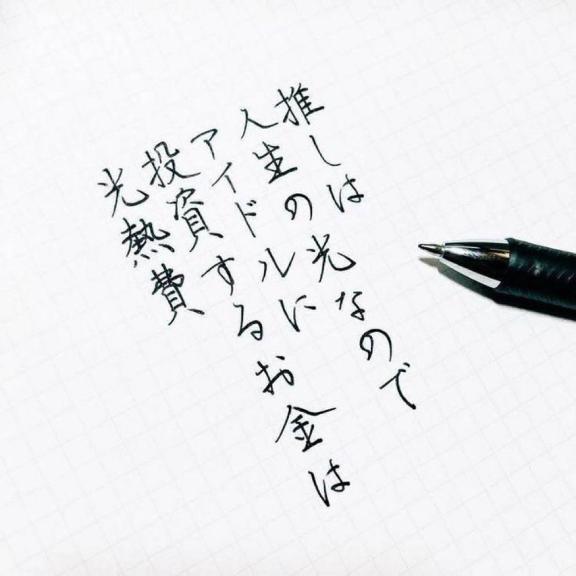 推しは
人生の光なので
アイドルに
投資するお金は
光熱費